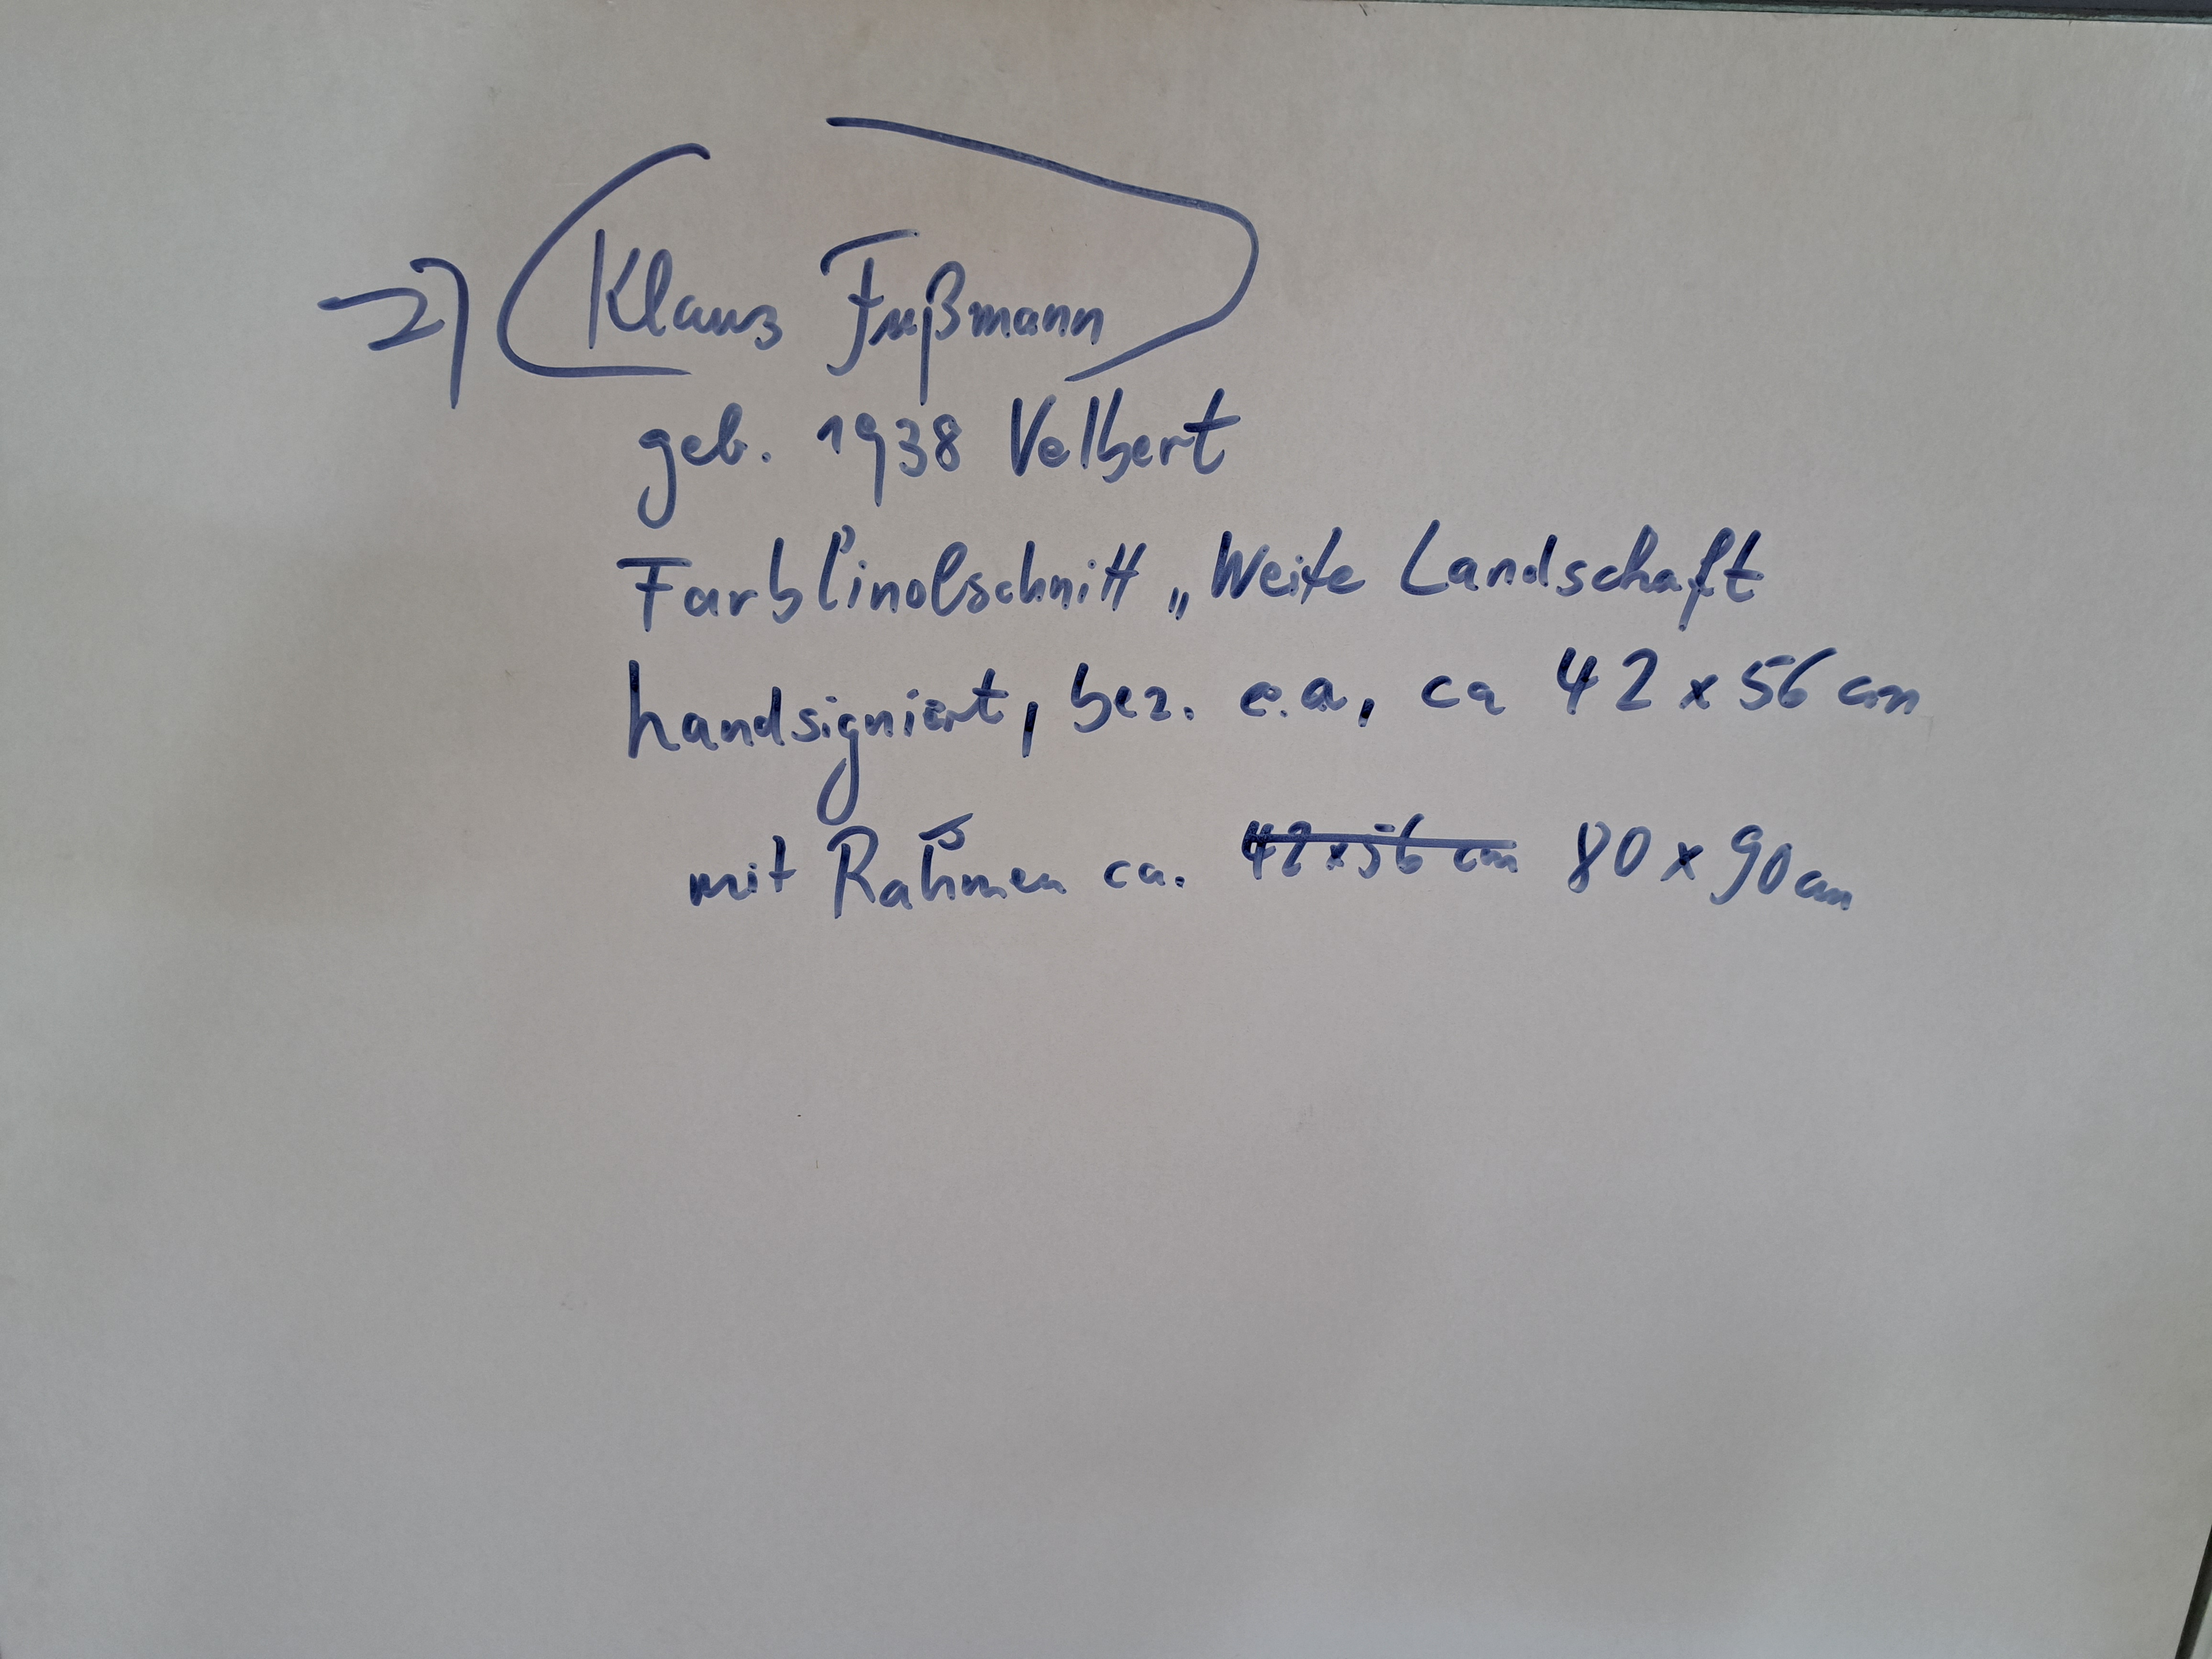 → Klaus Fußmann
geb. 1938 Velbert
Farblinolschnitt „Weite Landschaft
handsigniert, bez. e.a, ca 42 x 56 cm
mit Rahmen ca. 42 x 56 cm 80 x 90 cm